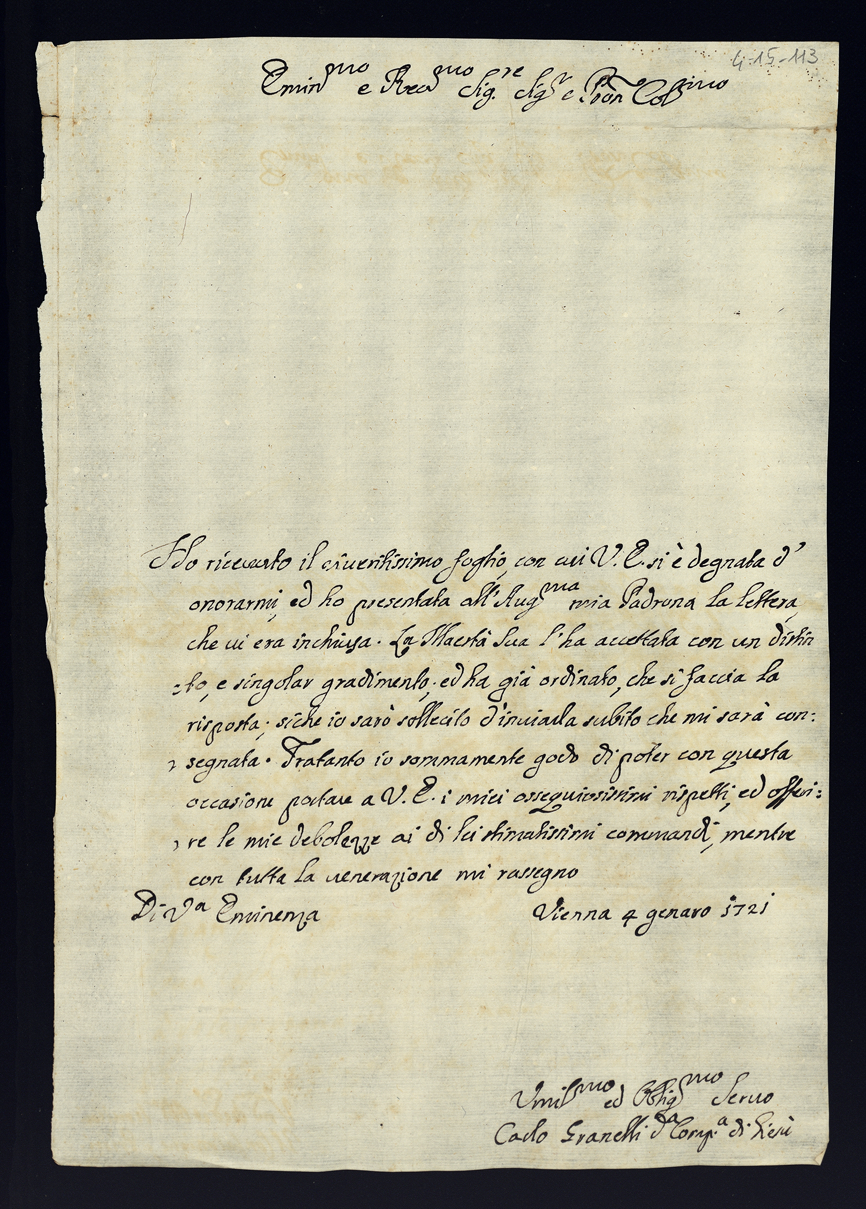 4-15-113
Emin^mo e Rev^mo Sig.^re Sig^r e Pron Col^mo
Ho ricevuto il riveritissimo foglio, con cui V. E. si è degnata d'
onorarmi, ed ho presentata all'Aug^ma mia Padrona la lettera,
che vi era inchiusa. La Maestà Sua l'ha accettata con un distin
=to, e singolar gradimento; ed ha già ordinato, che si faccia la
risposta; siche io sarò sollecito d'inviarla subito che mi sarà con:
segnata. Tratanto io sommamente godo di poter con questa
occasione portare a V. E. i miei ossequiosissimi rispetti, ed offeri:
re le mie debolezze ai di lei stimatissimi commandi, mentre
con tutta la venerazione mi rassegno
Di V^a Eminenza
Vienna 4 genaro 1721
Umil^mo ed Oblig^mo Servo
Carlo Granelli d^a Comp.^a di Giesù